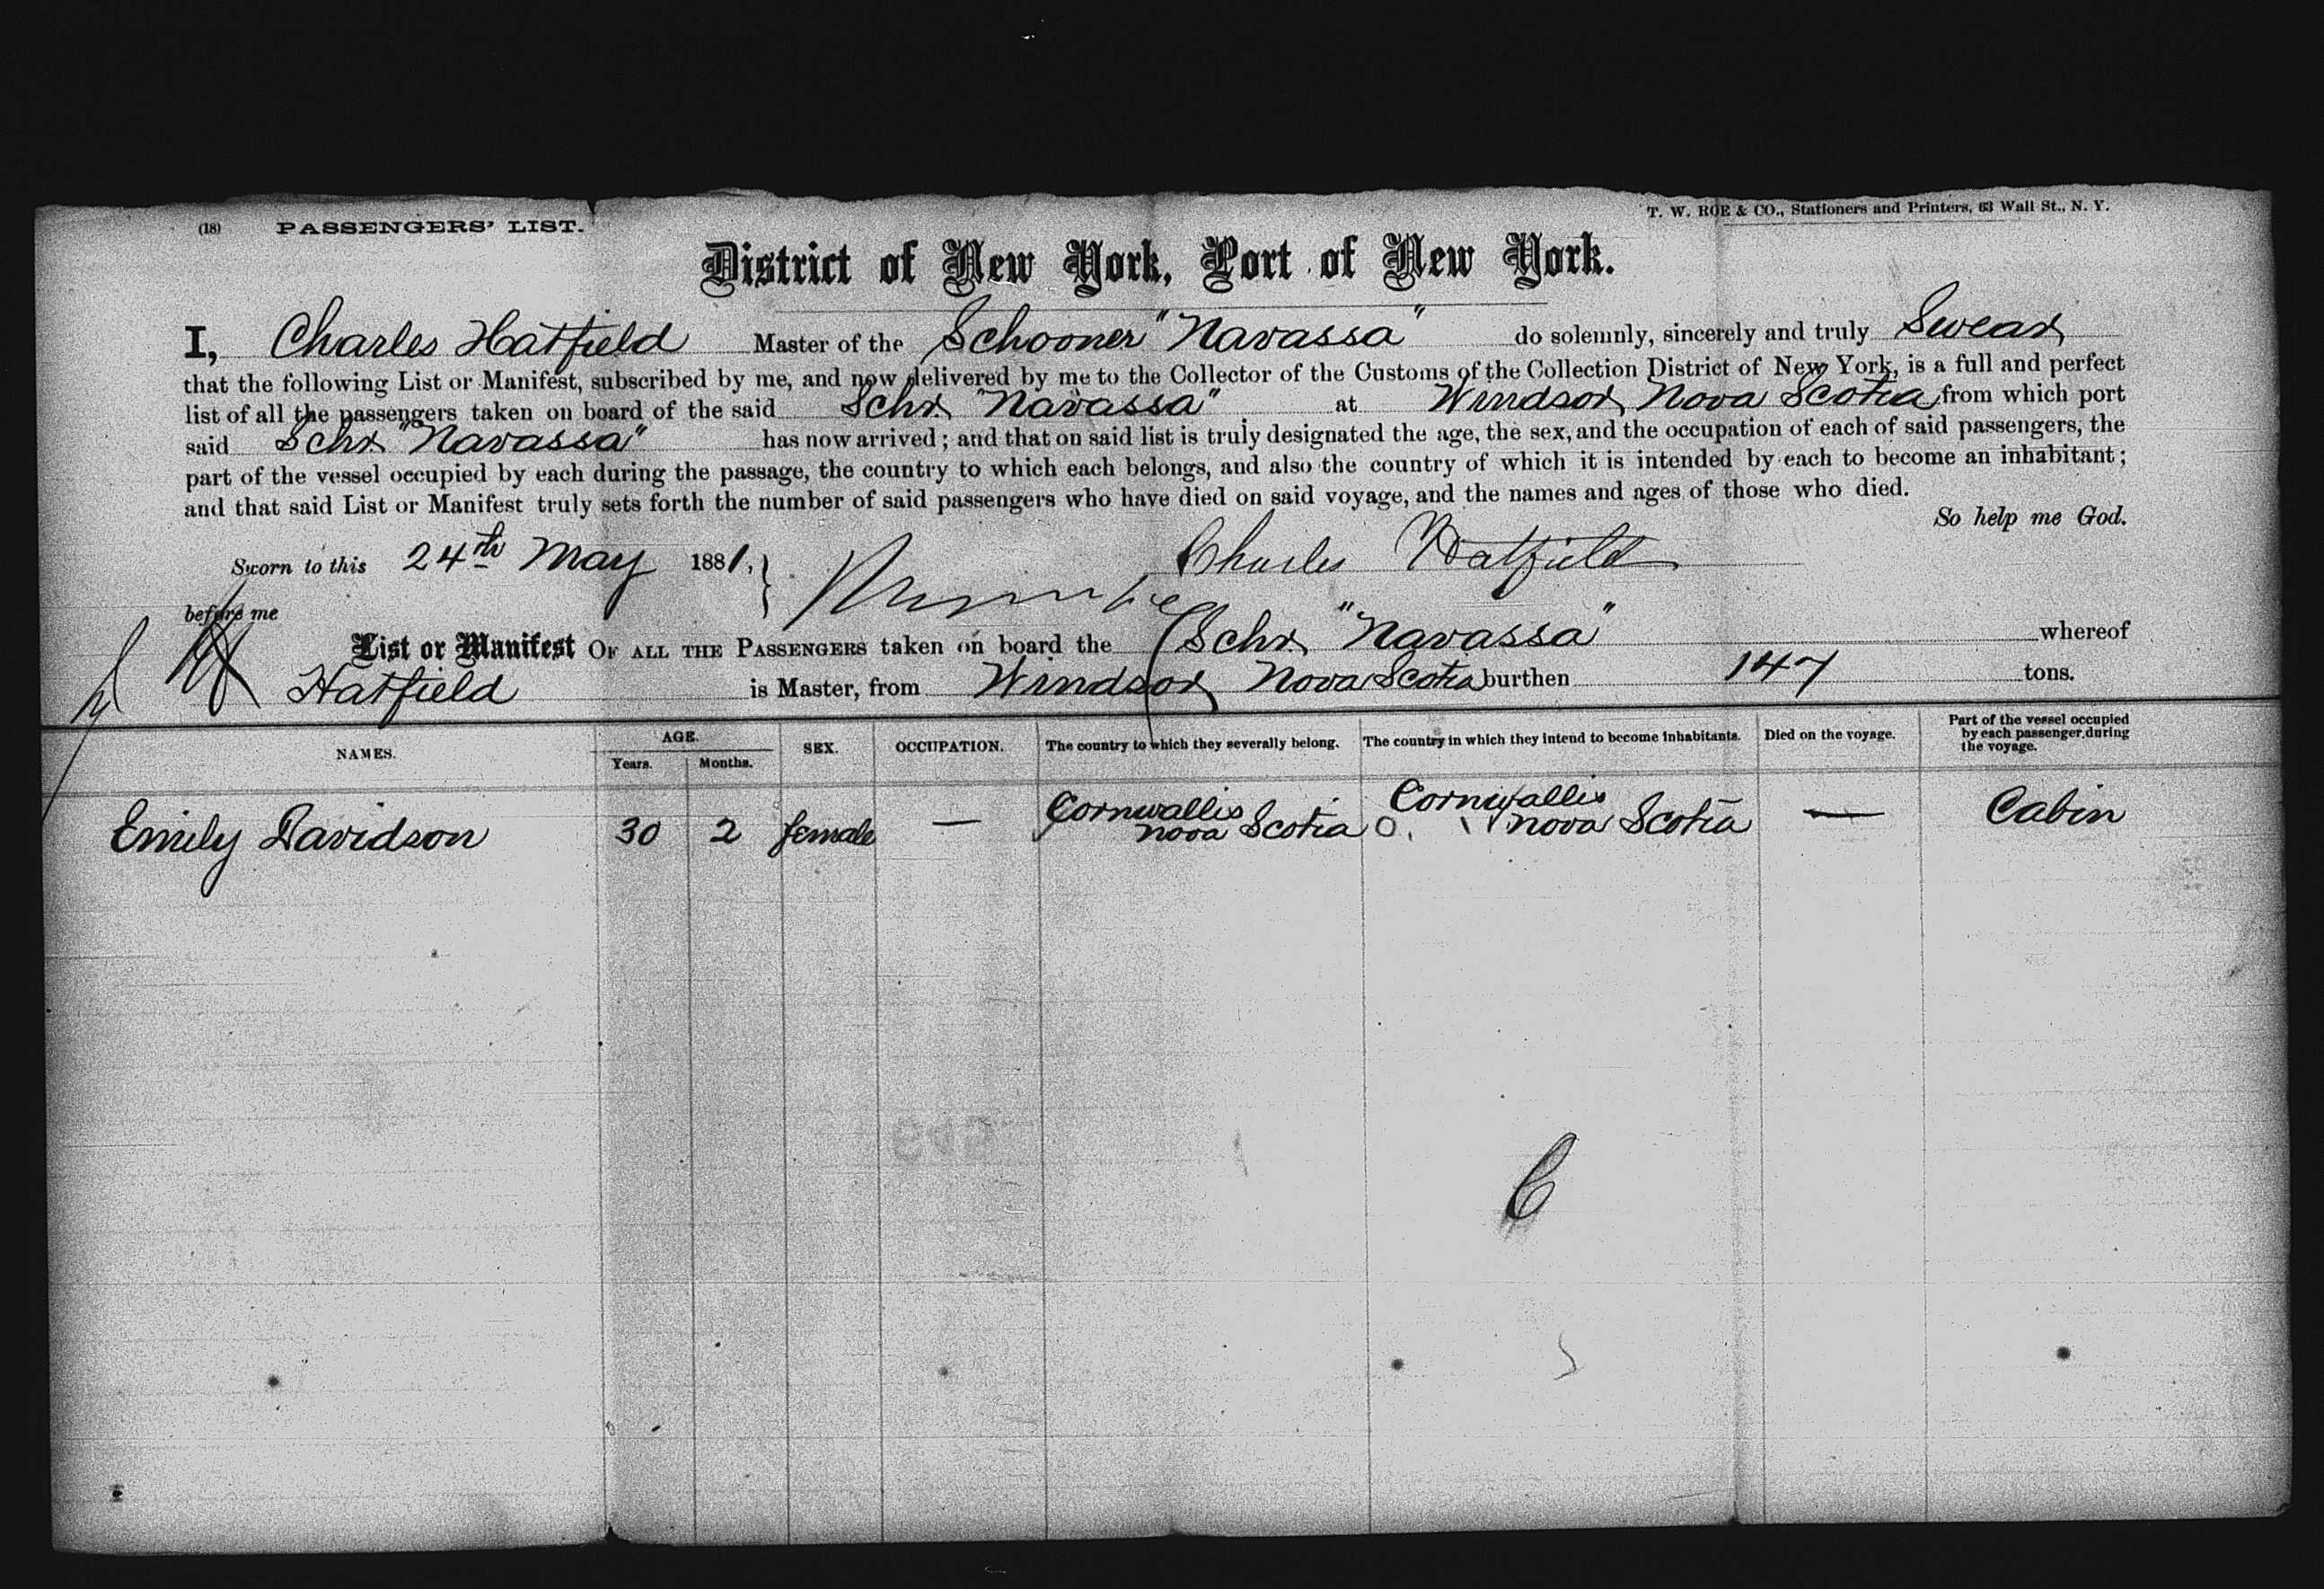 (18) PASSENGERS' LIST. T. W. ROE & CO., Stationers and Printers, 63 Wall St., N. Y.
District of New York, Port of New York.
I, Charles Hatfield Master of the Schooner "Navassa" do solemnly, sincerely and truly Swear
that the following List or Manifest, subscribed by me, and now delivered by me to the Collector of the Customs of the Collection District of New York, is a full and perfect
list of all the passengers taken on board of the said Schr "Navassa" at Windsor, Nova Scotia from which port
said Schr "Navassa" has now arrived; and that on said list is truly designated the age, the sex, and the occupation of each of said passengers, the
part of the vessel occupied by each during the passage, the country to which each belongs, and also the country of which it is intended by each to become an inhabitant;
and that said List or Manifest truly sets forth the number of said passengers who have died on said voyage, and the names and ages of those who died.
So help me God.
Sworn to this 24th May 1881, Charles Hatfield
before me
List or Manifest OF ALL THE PASSENGERS taken on board the Schr "Navassa" whereof
Hatfield is Master, from Windsor Nova Scotia burthen 147 tons.
NAMES. AGE. Years. Months. SEX. OCCUPATION. The country to which they severally belong. The country in which they intend to become inhabitants. Died on the voyage. Part of the vessel occupied by each passenger during the voyage.
Emily Davidson 30 2 female — Cornwallis Nova Scotia Cornwallis Nova Scotia — Cabin